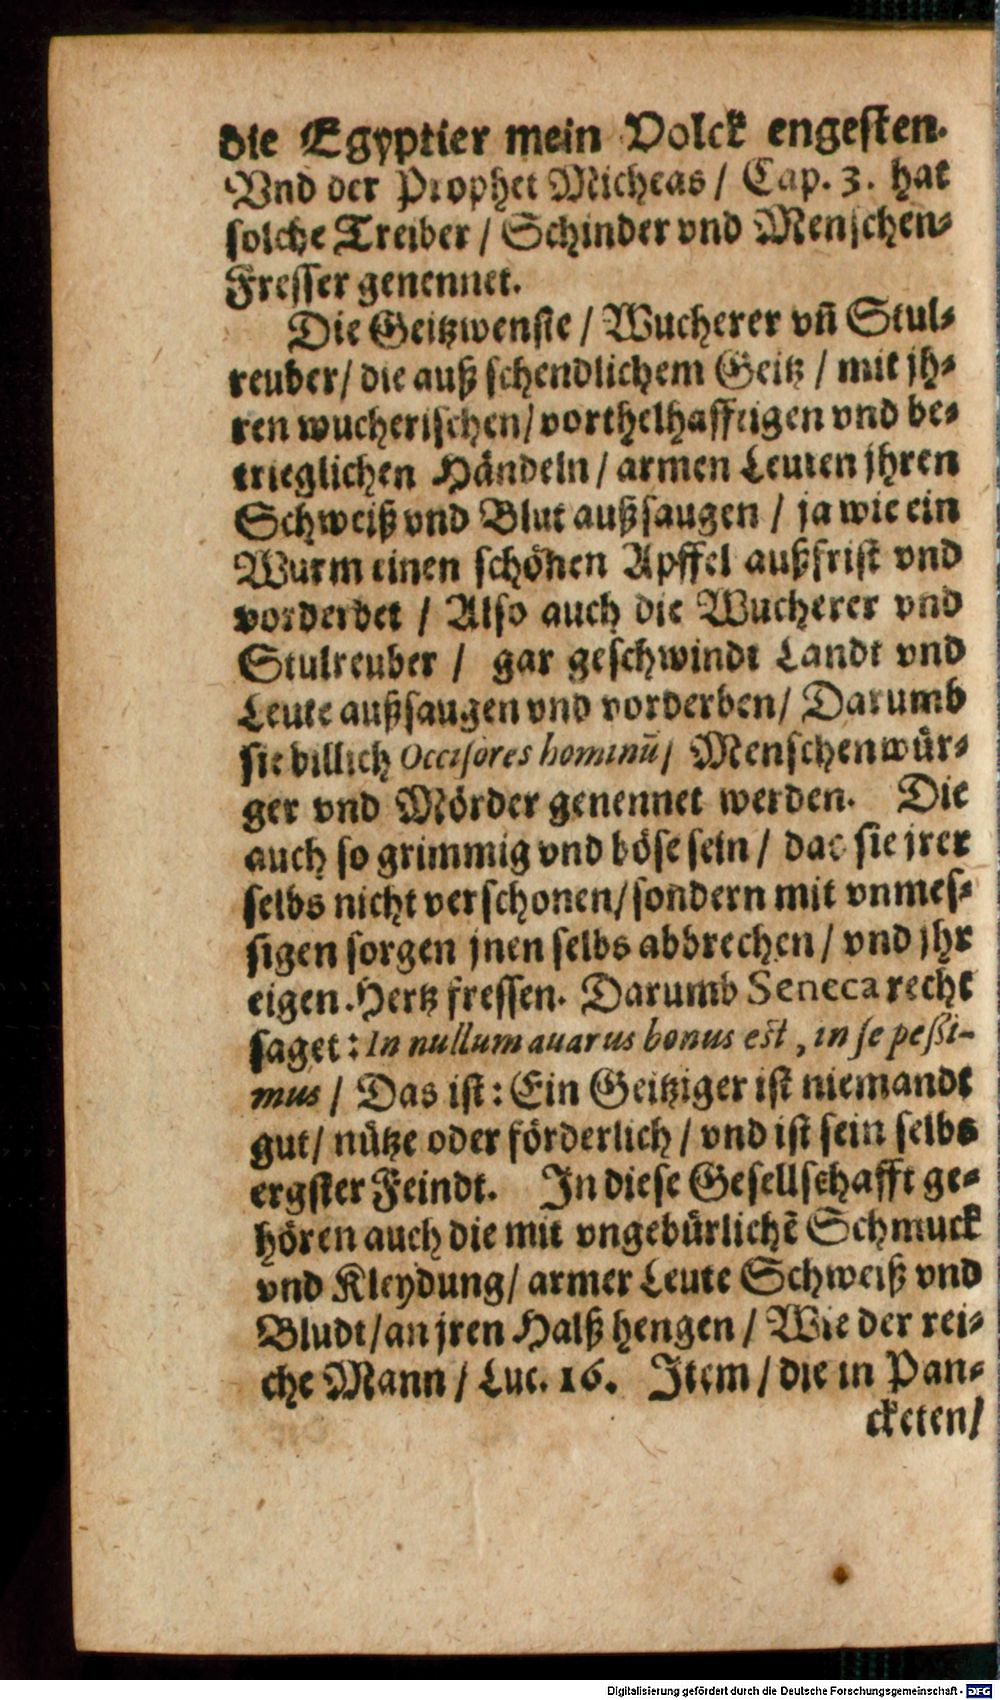 die Egyptier mein Volck engesten.
Vnd der Prophet Micheas / Cap. 3. hat
solche Treiber / Schinder vnd Menschen-
Fresser genennet.
Die Geitzwenste / Wucherer vñ Stul-
reuber / die auß schendlichem Geitz / mit jh-
ren wucherischen / vorthelhafftigen vnd be-
trieglichen Händeln / armen Leuten jhren
Schweiß vnd Blut außsaugen / ja wie ein
Wurm einen schönen Apffel außfrist vnd
vorderbet / Also auch die Wucherer vnd
Stulreuber / gar geschwindt Landt vnd
Leute außsaugen vnd vorderben / Darumb
sie billich Occisores hominū / Menschenwür-
ger vnd Mörder genennet werden. Die
auch so grimmig vnd böse sein / das sie jrer
selbs nicht verschonen / sondern mit vnmes-
sigen sorgen jnen selbs abbrechen / vnd jhr
eigen Hertz fressen. Darumb Seneca recht
saget : In nullum auarus bonus est, in se peßi-
mus / Das ist : Ein Geitziger ist niemandt
gut / nütze oder förderlich / vnd ist sein selbs
ergster Feindt. In diese Gesellschafft ge-
hören auch die mit vngebürlichē Schmuck
vnd Kleydung / armer Leute Schweiß vnd
Bludt / an jren Halß hengen / Wie der rei-
che Mann / Luc. 16. Item / die in Pan-
cketen /
Digitalisierung gefördert durch die Deutsche Forschungsgemeinschaft - DFG